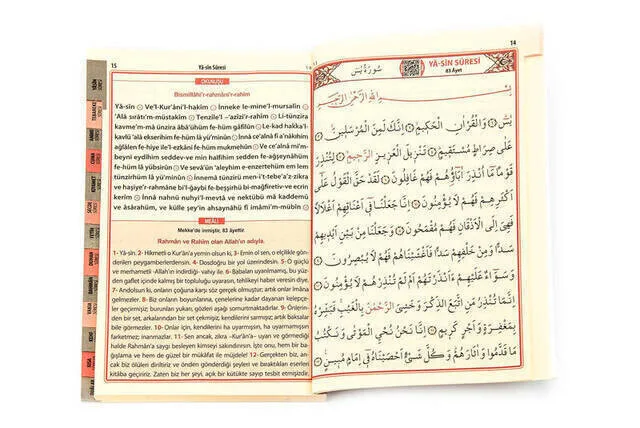 15 Yâ-sîn Sûresi
OKUNUŞU
Bismillâhi'r-rahmâni'r-rahîm
Yâ-sîn ۞ Ve'l-Kur'âni'l-hakîm ۞ İnneke le-mine'l-murselîn ۞
'Alâ sırâtı'm-müstakîm ۞ Tenzîle'l-'azîzi'r-rahîm ۞ Li-tünzira
kavme'm-mâ ünzira âbâühüm fe-hüm gâfilûn ۞ Le-kad hakka'l-
kavlü 'alâ ekserihim fe-hüm lâ yü'minûn ۞ İnnâ ce'alnâ fî a'nâkıhim
ağlâlen fe-hiye ile'l-ezkâni fe-hüm mukmehûn ۞ Ve ce'alnâ mi'm-
beyni eydîhim sedde'v-ve min halfihim sedden fe-ağşeynâhüm
fe-hüm lâ yübsirûn ۞ Ve sevâ'ün 'aleyhim e-enzertehüm em lem
tünzirhüm lâ yü'minûn ۞ İnnemâ tünziru men-i't-tebe'a'z-zikra
ve haşiye'r-rahmâne bi'l-ğaybi fe-beşşirhü bi-mağfirati'v-ve ecrin
kerîm ۞ İnnâ nahnü nuhyi'l-mevtâ ve nektübü mâ kaddemû
ve âsârahüm, ve külle şey'in ahsaynâhü fî imâmi'm-mübîn ۞
MEÂLİ
Mekke'de inmiştir, 83 âyettir.
Rahmân ve Rahîm olan Allah'ın adıyla.
1- Yâ-sîn. 2- Hikmetli o Kur'ân'a yemin olsun ki, 3- Emin ol sen, o elçilikle gönde-
rilen peygamberlerdensin. 4- Dosdoğru bir yol üzerindesin. 5- O güçlü
ve merhametli -Allah'ın indirdiği- vahiy ile. 6- Babaları uyarılmamış, bu yüz-
den gaflet içinde kalmış bir topluluğu uyarasın, tehlikeyi haber veresin diye.
7- Andolsun ki, onların çoğuna karşı söz gerçek olmuştur; artık onlar imâna
gelmezler. 8- Biz onların boyunlarına, çenelerine kadar dayanan kelepçe-
ler geçirmişiz; burunları yukarı, gözleri aşağı somurtmaktadırlar. 9- Önlerin-
den bir set, arkalarından bir set çekmişiz, kendilerini sarmışız; artık baksalar
bile görmezler. 10- Onlar için, kendilerini ha uyarmışsın, ha uyarmamışsın
farketmez; inanmazlar. 11- Sen ancak, zikra -Kur'ân'a- uyan ve görmediği
halde Rahmân'a saygı besleyen kimseyi sakındırırsın. İşte onu, hem bir ba-
ğışlama ve hem de güzel bir mükâfat ile müjdele! 12- Gerçekten biz, an-
cak biz ölüleri diriltiriz ve önden gönderdikleri şeyleri ve bıraktıkları eserleri
kitâba geçiririz. Zaten biz her şeyi, açık bir kütükte sayıp tesbit etmişizdir.
14
سُورَةُ يٰسٓ
YÂ-SÎN SÛRESİ
83 Âyet
بِسْمِ اللّٰهِ الرَّحْمٰنِ الرَّحِيمِ
يٰسٓ ۞ وَالْقُرْاٰنِ الْحَكِيمِ ۞ اِنَّكَ لَمِنَ الْمُرْسَلِينَ ۞
عَلٰى صِرَاطٍ مُسْتَقِيمٍ ۞ تَنْزِيلَ الْعَزِيزِ الرَّحِيمِ ۞ لِتُنْذِرَ
قَوْمًا مَٓا اُنْذِرَ اٰبَٓاؤُ۬هُمْ فَهُمْ غَافِلُونَ ۞ لَقَدْ حَقَّ الْقَوْلُ عَلٰٓى
اَكْثَرِهِمْ فَهُمْ لَا يُؤْمِنُونَ ۞ اِنَّا جَعَلْنَا فِٓي اَعْنَاقِهِمْ اَغْلَالًا
فَهِيَ اِلَى الْاَذْقَانِ فَهُمْ مُقْمَحُونَ ۞ وَجَعَلْنَا مِنْ بَيْنِ اَيْدِيهِمْ
سَدًّا وَمِنْ خَلْفِهِمْ سَدًّا فَاَغْشَيْنَاهُمْ فَهُمْ لَا يُبْصِرُونَ ۞
وَسَوَٓاءٌ عَلَيْهِمْ ءَاَنْذَرْتَهُمْ اَمْ لَمْ تُنْذِرْهُمْ لَا يُؤْمِنُونَ ۞
اِنَّمَا تُنْذِرُ مَنِ اتَّبَعَ الذِّكْرَ وَخَشِيَ الرَّحْمٰنَ بِالْغَيْبِ فَبَشِّرْهُ
بِمَغْفِرَةٍ وَاَجْرٍ كَرِيمٍ ۞ اِنَّا نَحْنُ نُحْيِ الْمَوْتٰى وَنَكْتُبُ
مَا قَدَّمُوا وَاٰثَارَهُمْ وَكُلَّ شَيْءٍ اَحْصَيْنَاهُ فِٓي اِمَامٍ مُبِينٍ ۞